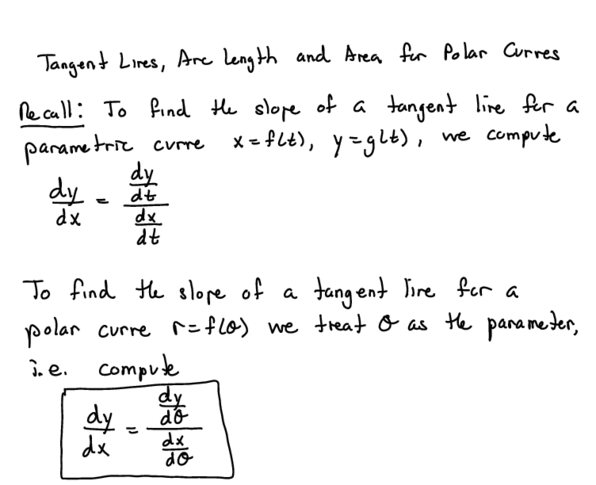 Tangent Lines, Arc Length and Area for Polar Curves
Recall: To find the slope of a tangent line for a
parametric curve x = f(t), y = g(t), we compute
dy/dx = (dy/dt)/(dx/dt)
To find the slope of a tangent line for a
polar curve r = f(θ) we treat θ as the parameter,
i.e. compute
dy/dx = (dy/dθ)/(dx/dθ)